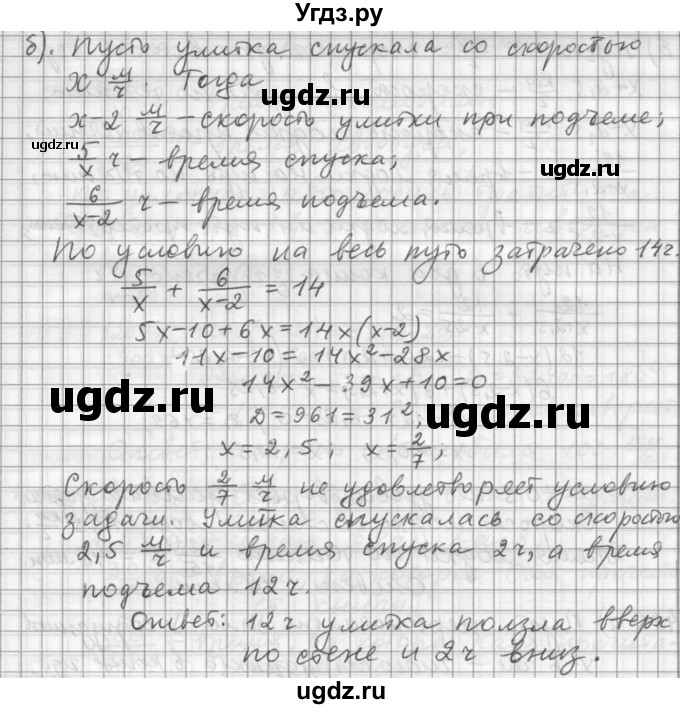 Угдз.ру
б). Пусть улитка спускала со скоростью
x м/ч. Тогда
ugdz.ru
x-2 м/ч – скорость улитки при подъеме;
ugdz.ru
5/x ч – время спуска;
ugdz.ru
6/(x-2) ч – время подъема.
По условию на весь путь затрачено 14ч.
5/x + 6/(x-2) = 14
5x-10+6x=14x(x-2)
11x-10= 14x²-28x
14x²-39x+10=0
ugdz.ru
ugdz.ru
D=961=31²;
x=2,5; x=2/7;
Скорость 2/7 м/ч не удовлетворяет условию
задачи. Улитка спускалась со скоростью
2,5 м/ч и время спуска 2ч, а время
подъема 12ч.
ugdz.ru
Ответ: 12ч улитка ползла вверх
по стене и 2ч вниз.
ugdz.ru